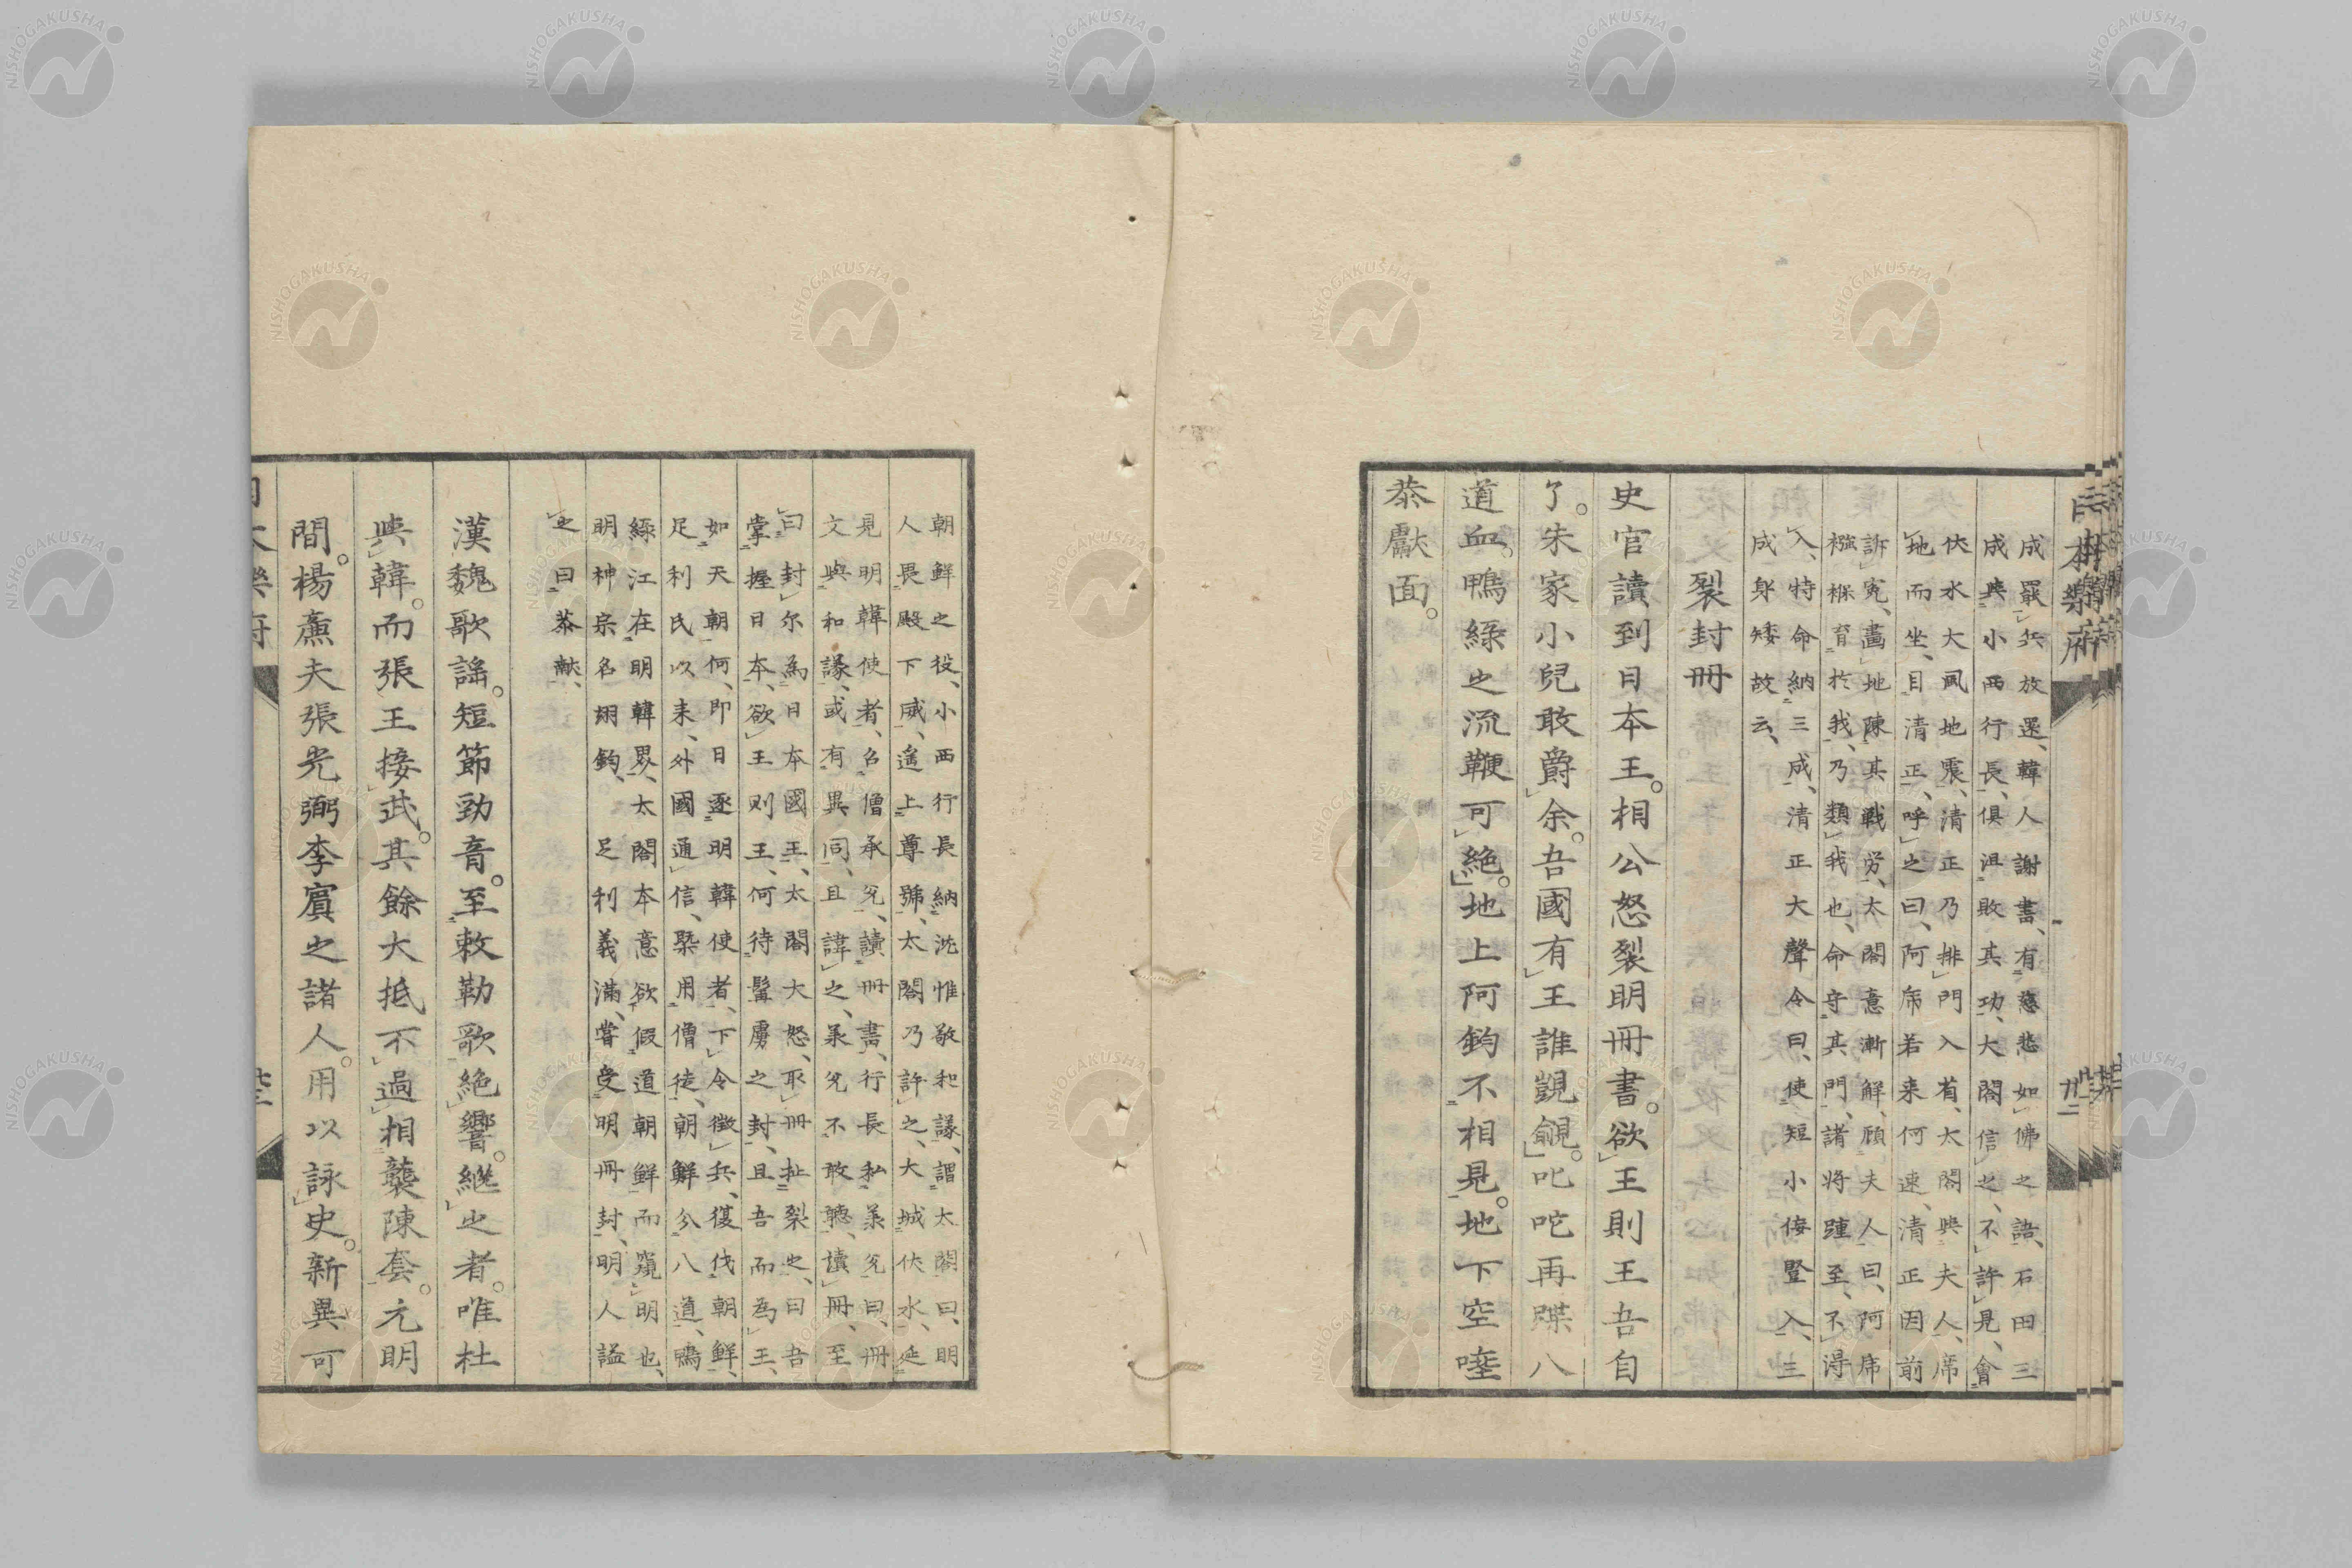 日本樂府
成罷兵放還、韓人謝書、有慈悲如佛之語、石田三
成與小西行長、俱沮敗其功、大閤信之、不許見、會
伏水大風地震、清正乃排門入省、太閤與夫人、席
地而坐、目清正、呼之曰、阿席若来何速、清正因前
訴寃、畫地陳其戰労、太閤意漸解、顧夫人曰、阿席
襁褓育於我、乃類我也、命守其門、諸将踵至、不得
入、特命納三成、清正大聲令曰、使短小侫豎入、三
成身矮故云、
裂封冊
史官讀到日本王。相公怒裂明冊書。欲王則王吾自
了。朱家小兒敢爵余。吾國有王誰覬覦。叱咤再蹀八
道血。鴨緑之流鞭可絶。地上阿鈞不相見。地下空唾
恭獻面。
朝鮮之役、小西行長納沈惟敬和議、謂太閤曰、明
人畏殿下威、遙上尊號、太閤乃許之、大城伏水、延
見明韓使者、召僧承兌、讀冊書、行長私羕兌曰、冊
文與和議、或有異同、且諱之、羕兌不敢聽、讀冊、至
曰封尔為日本國王、太閤大怒、取冊扯裂之、曰吾
掌握日本、欲王則王、何待髯虜之封、且吾而為王、
如天朝何、即日逐明韓使者、下令徴兵、復伐朝鮮、
足利氏以来、外國通信、槩用僧徒、朝鮮分八道、鴨
緑江在明韓界、太閤本意欲假道朝鮮而窺明也、
明神宗名翊鈞、足利義滿、嘗受明冊封、明人謚
之曰恭献、
漢魏歌謡。短節勁音。至敕勒歌絶響。継之者。唯杜
與韓。而張王接武。其餘大抵不過相襲陳套。元明
間。楊廉夫張光弼李賓之諸人。用以詠史。新異可